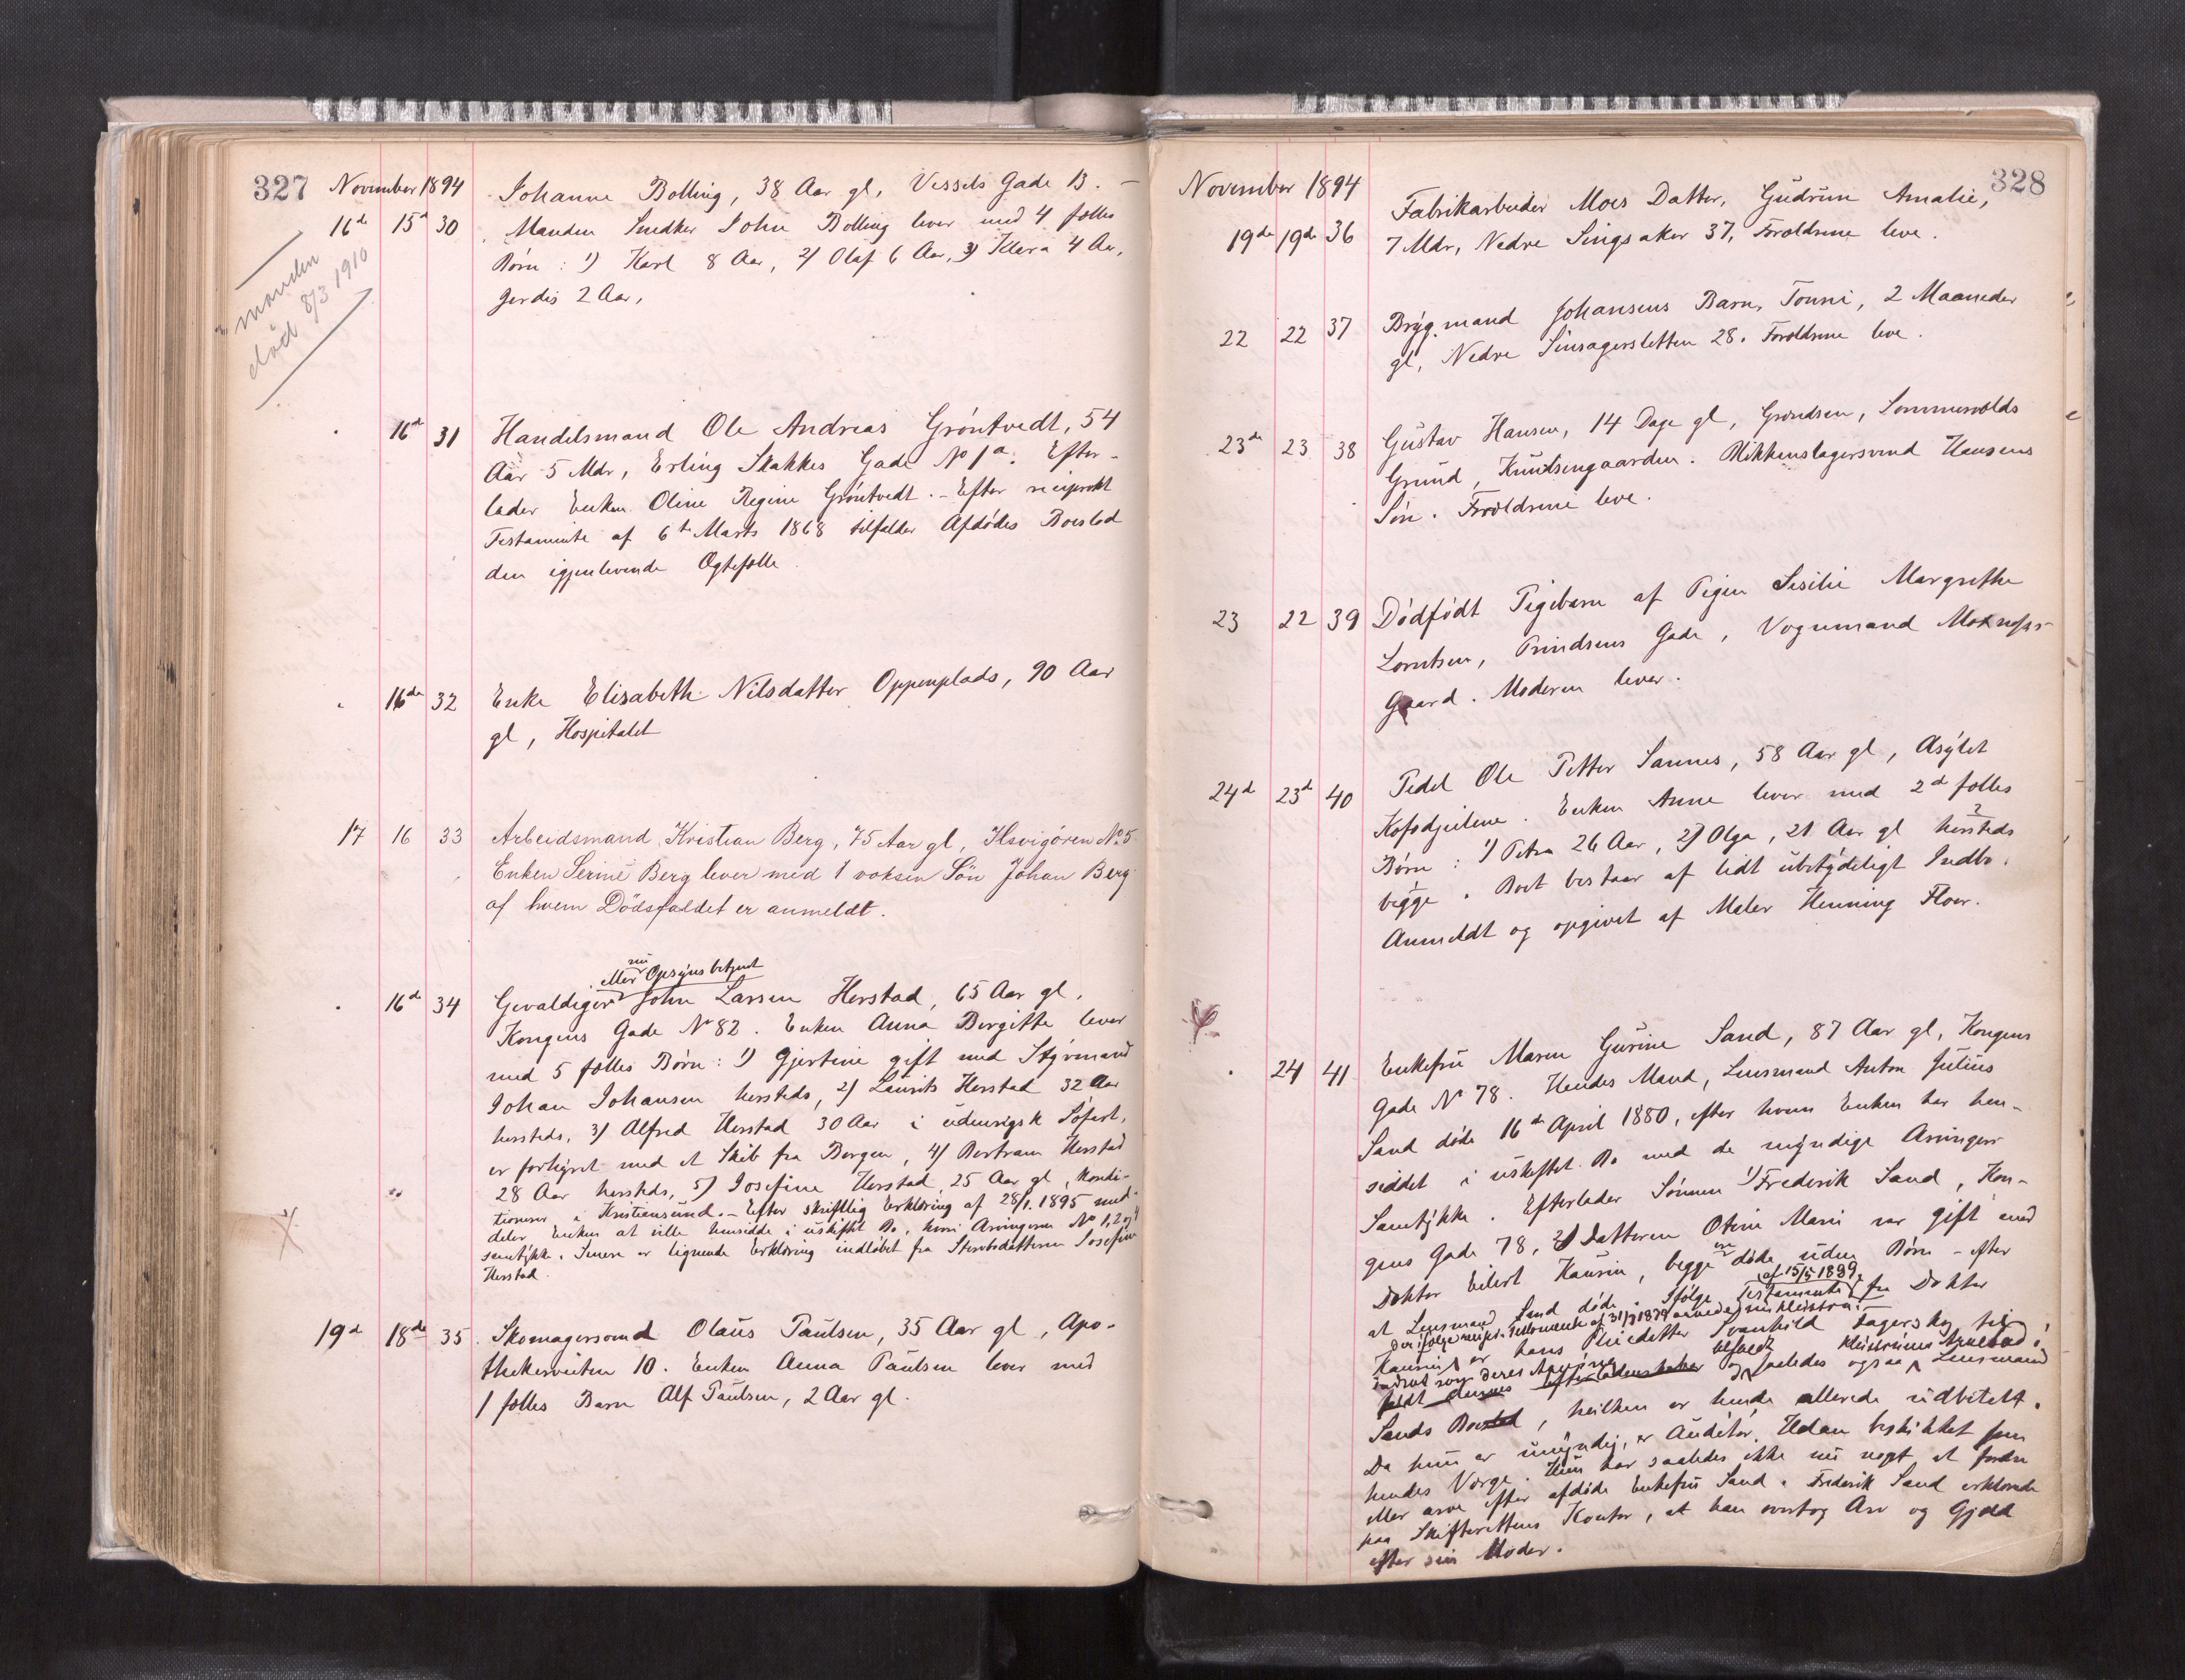 327 November 1894
16de 15d 30 Johanne Bolling, 38 Aar gl, Vessels Gade 13. –
Manden Snedker John Bolling lever med 4 fælles
Børn: 1) Karl 8 Aar, 2) Olaf 6 Aar, 3) Klara 4 Aar,
Gerdis 2 Aar,
manden
død 8/3 1910
16de 31 Handelsmand Ole Andreas Gröntvedt, 54
Aar 5 Mdr, Erling Skakkes Gade No 1a. Efter-
lader Enken Oline Regine Gröntvedt. – Efter reciprokt
Testamente af 6te Marts 1868 tilfalder Afdødes Boeslod
den igjenlevende Ægtefælle.
16de 32 Enke Elisabeth Nilsdatter Oppenplads, 90 Aar
gl, Hospitalet
17 16 33 Arbeidsmand Kristian Berg, 75 Aar gl, Ilsvigören No 5.
Enken Serine Berg lever med 1 voksen Sön Johan Berg
af hvem Dödsfaldet er anmeldt.
nu
eller Opsynsbetjent
16de 34 Gevaldiger John Larsen Herstad, 65 Aar gl,
Kongens Gade No 82. Enken Anna Birgitte lever
med 5 fælles Børn: 1) Gjertine gift med Styrmand
Johan Johansen hersteds, 2) Laurits Herstad 32 Aar
hersteds, 3) Alfred Herstad 30 Aar i udenrigsk Søfart,
er forhyret med et Skib fra Bergen, 4) Bertram Herstad
28 Aar hersteds, 5) Josefine Herstad, 25 Aar gl, Kondi-
tionerer i Kristiansund. – Efter skriftlig Erklæring af 28/1 1895 med-
deler Enken at ville hensidde i uskiftet Bo, hvori Arvingerne No 1, 2 og 4
samtykke. Senere er lignende Erklæring indløbet fra Stervbodatteren Josefine
Herstad.
19d 18de 35 Skomagersvend Olaus Paulsen, 35 Aar gl, Apo-
thekerveiten 10. Enken Anna Paulsen lever med
1 fælles Barn Alf Paulsen, 2 Aar gl.
November 1894 328
19de 19de 36 Fabrikarbeider Moes Datter, Gudrun Amalie,
7 Mdr, Nedre Singsaker 37, Forældrene leve.
22 22 37 Brygmand Johansens Barn, Tonni, 2 Maaneder
gl, Nedre Sinsagersletten 28. Forældrene leve.
23de 23 38 Gustav Hansen, 14 Dage gl, Grændsen, Sommervolds
Grund, Knudsengaarden. Blikkenslagersvend Hansens
Søn. Forældrene leve.
23 22 39 Dødfødt Pigebarn af Pigen Sesilie Margrethe
Lorntsen, Prindsens Gade, Vognmand
Gaard. Moderen lever.
24d 23d 40 Pedel Ole Petter Sannes, 58 Aar gl, Asylet
Enken Anne lever med 2d fælles
Børn: 1) Petra 26 Aar, 2) Olga, 21 Aar gl hersteds
begge. Boet bestaar af lidt ubetydeligt Indbo.
Anmeldt og opgivet af Maler Henning Floer.
24 41 Enkefru Maren Gurine Sand, 87 Aar gl, Kongens
Gade No 78. Hendes Mand, Lensmand Anton Julius
Sand døde 16de April 1880, efter hvem Enken har hen-
siddet i uskiftet Bo med de myndige Arvingers
Samtykke. Efterlader Sønnen 1) Frederik Sand, Kon-
gens Gade 78, 2) Datteren Otine Marie var gift med
Doktor Eilert Hansen, begge ere døde uden Børn – efter
at Lensmand Sand døde. Ifølge Testamente af 15/5 1889 fra Doktor
er hans Pleiedatter Svanhild Fagersky
og saaledes ogsaa Lensmand
Sands Boeslod, hvilken er hende allerede udbetalt.
Da hun er umyndig, er Auditør Udan beskikket som
hendes Værge. Hun har saaledes ikke nu noget at fordre
eller arve efter afdøde Enkefru Sand. Frederik Sand erklærede
paa Skifterettens Kontor, at han overtog Arv og Gjæld
efter sin Moder.